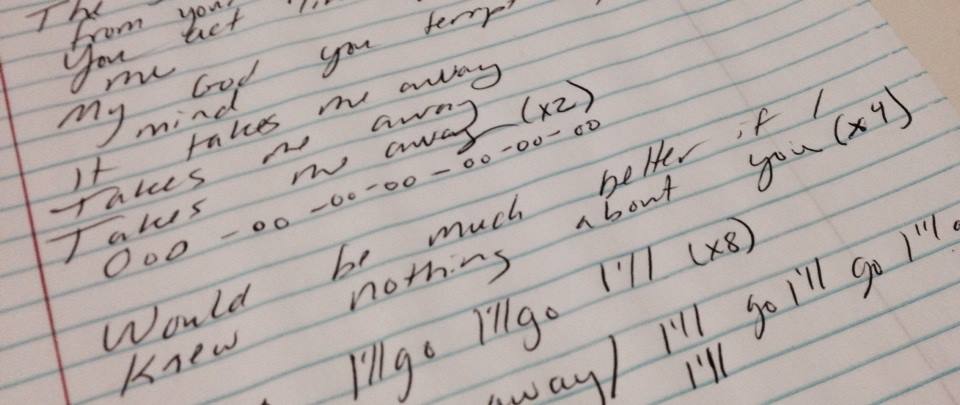 The
from your
You act
me
My God you tempt
mind
It takes me away
Takes me away
Takes me away (x2)
Ooo - oo - oo - oo - oo - oo - oo
Would be much better if I
Knew nothing about you (x4)
I'll go I'll go I'll (x8)
away) I'll go I'll go I'll
I'll